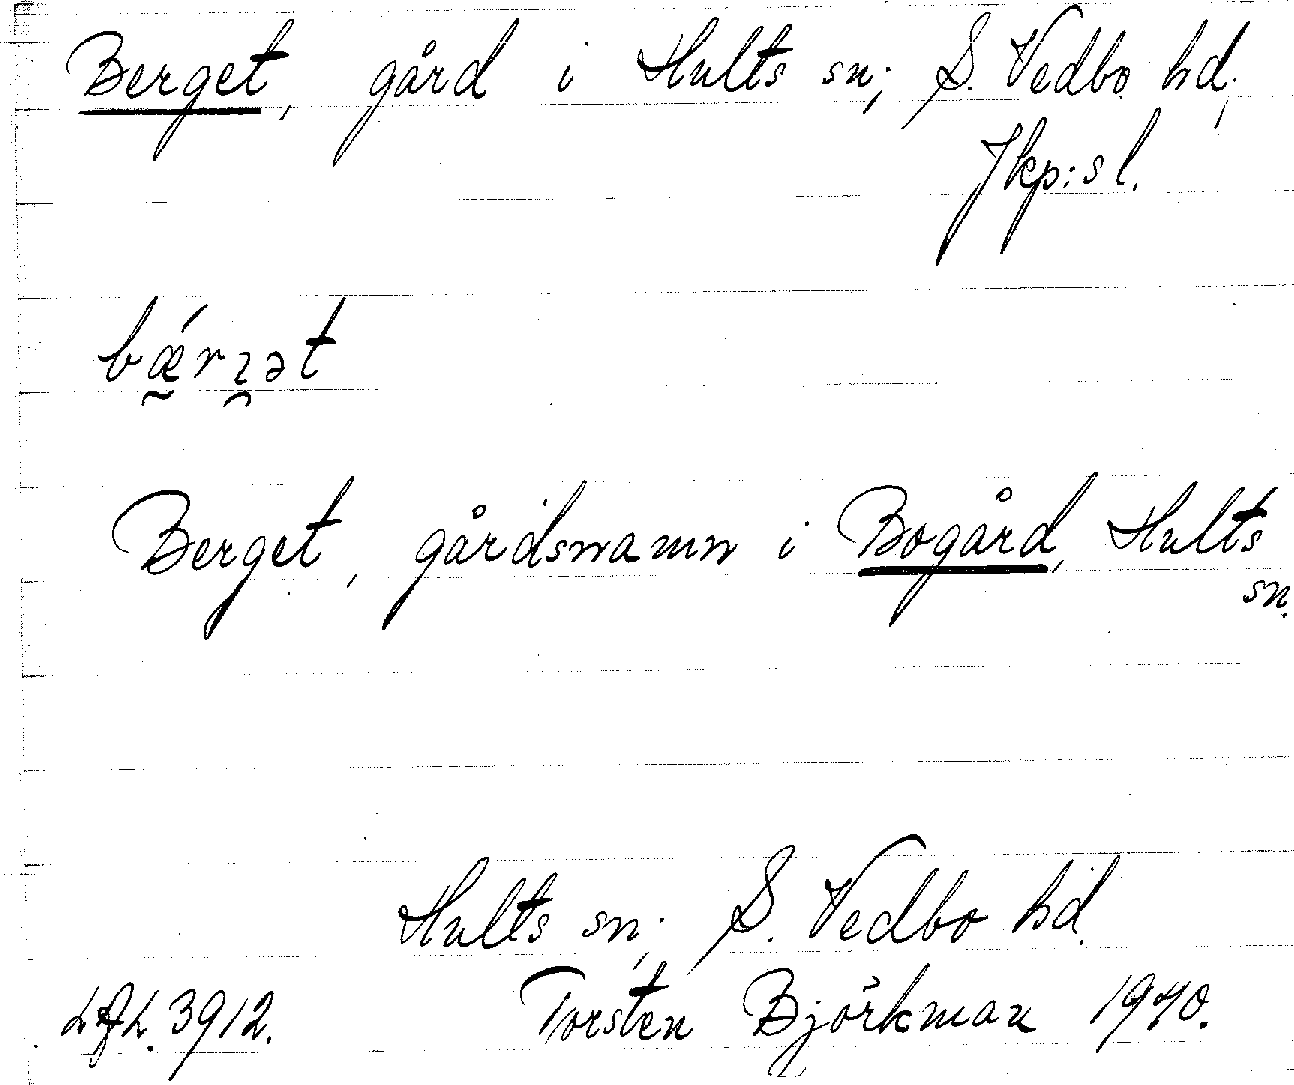 Berget, gård i Hults sn; S. Vedbo hd;
Jkp:s l.
bǽrɿ̯ət
Berget, gårdsnamn i Bogård, Hults
sn.
Hults sn; S. Vedbo hd.
LAL. 3912. Torsten Björkman 1940.